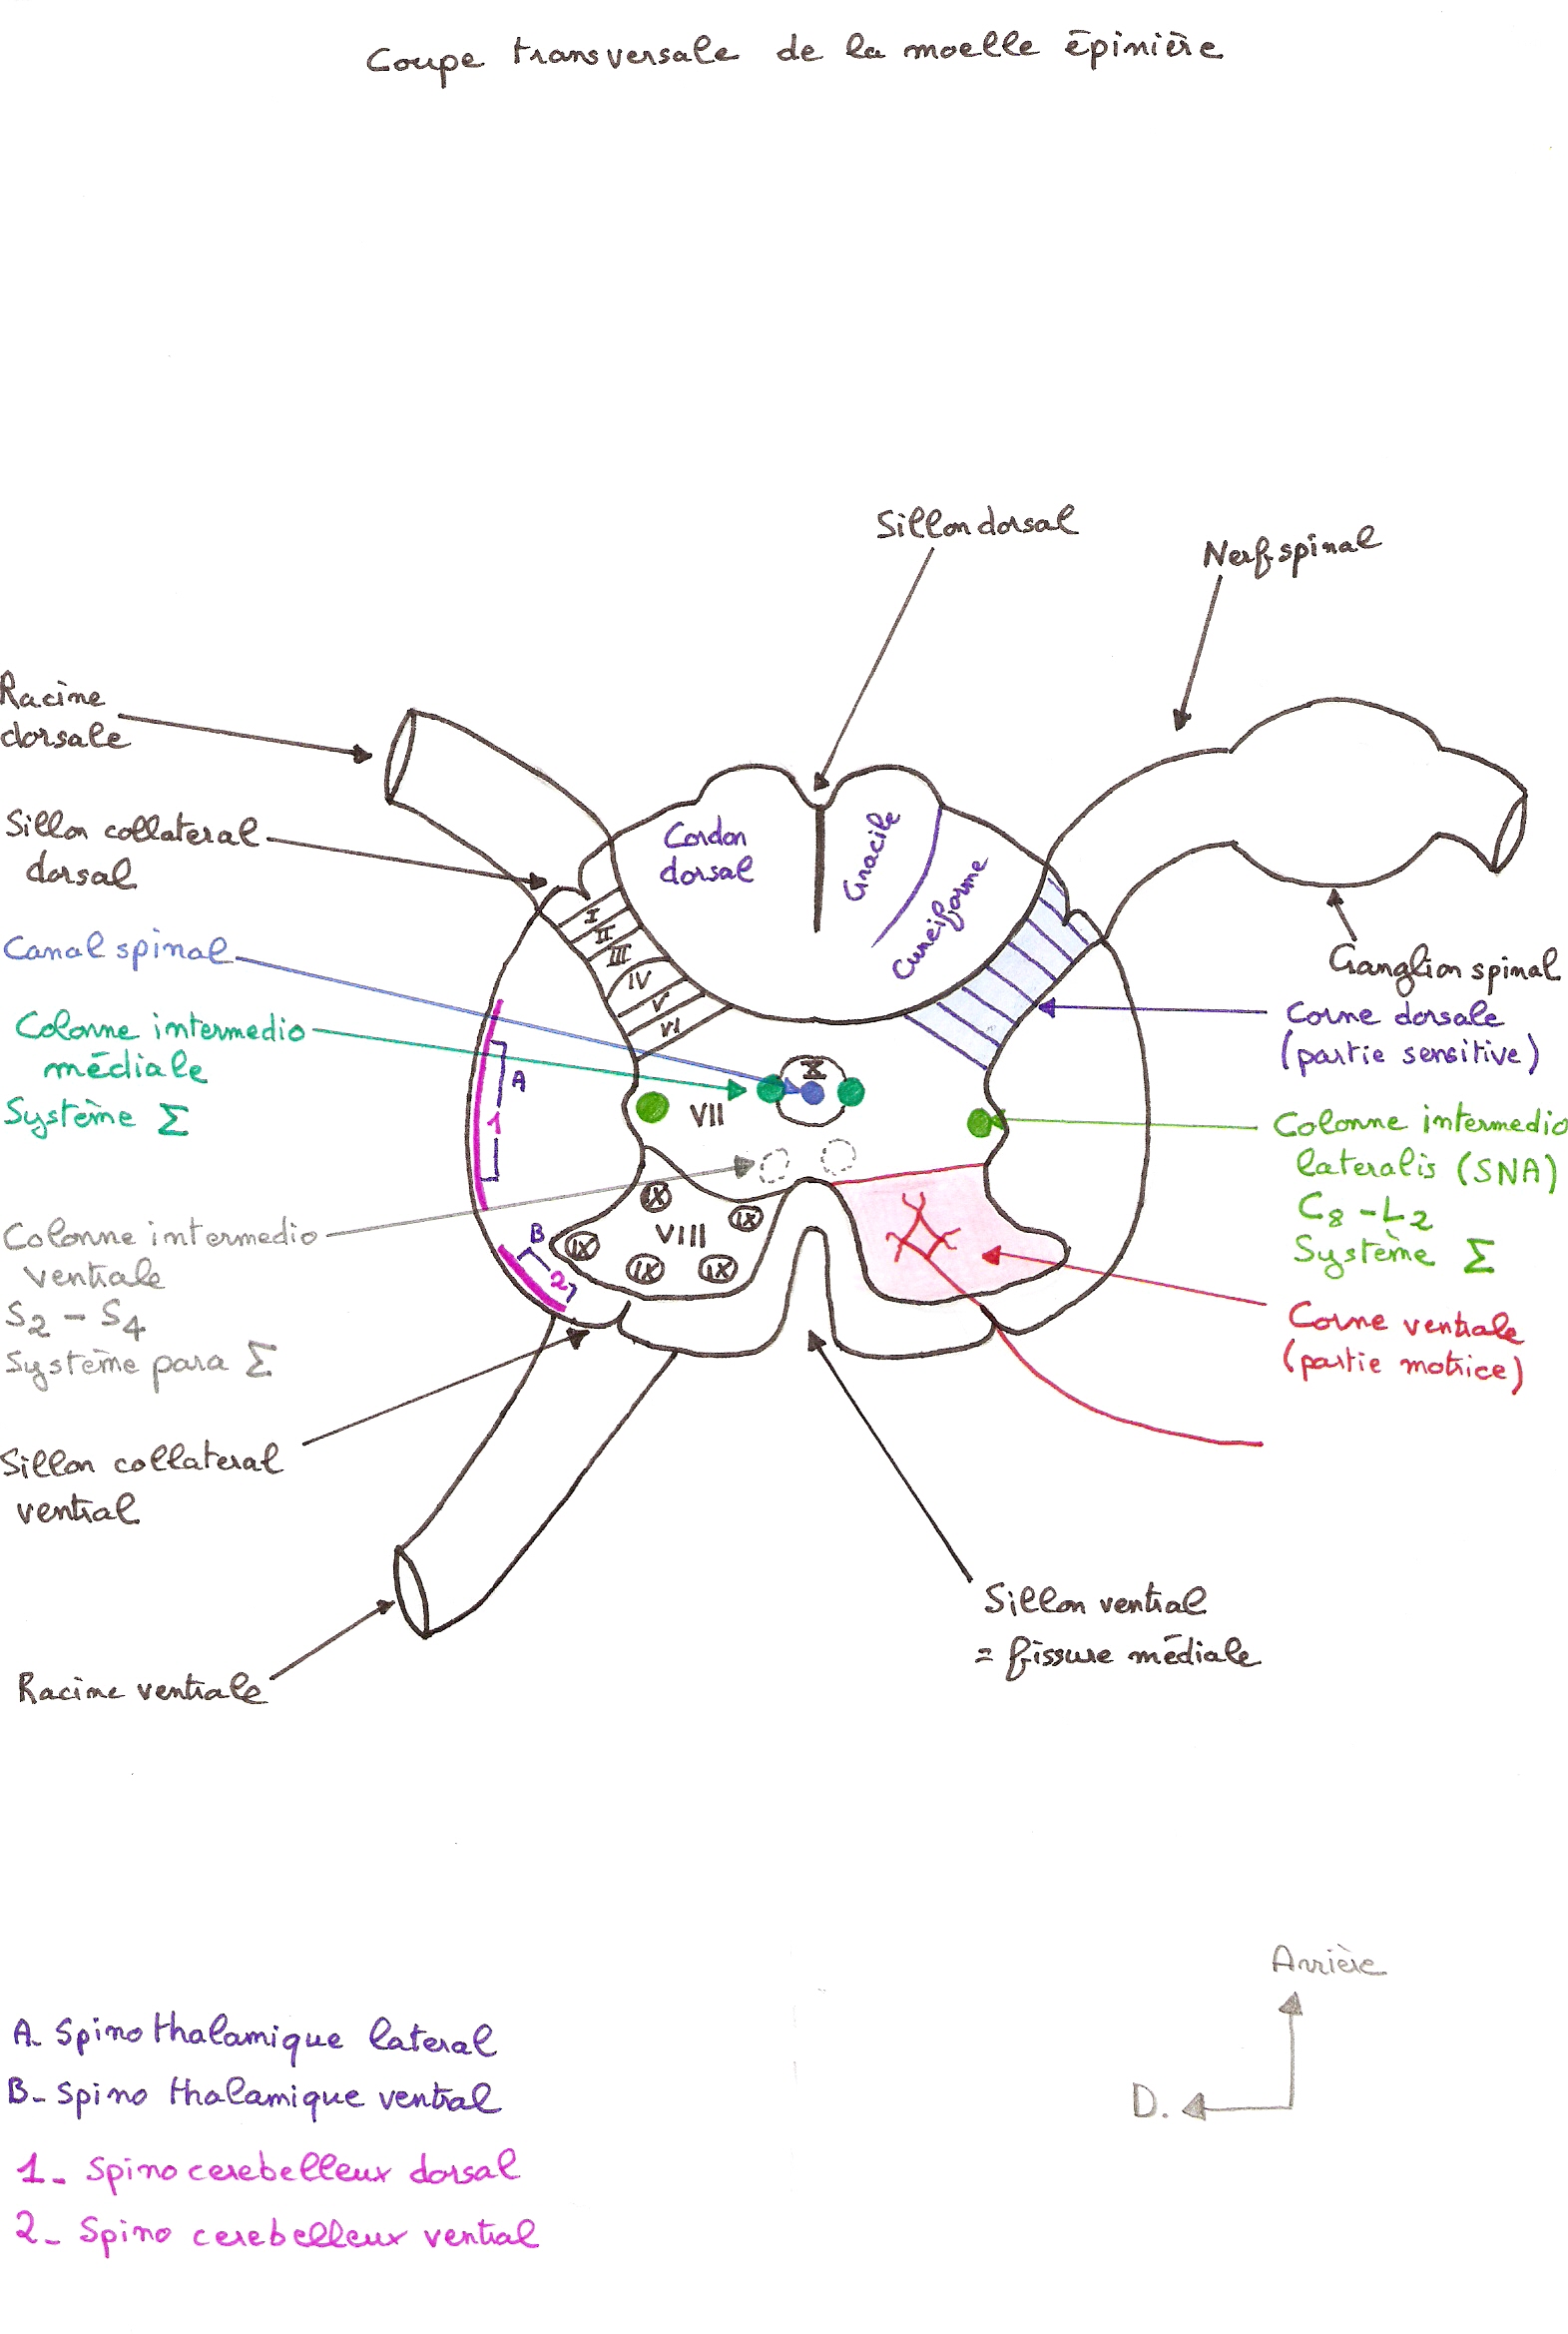 Coupe transversale de la moelle épinière
Sillon dorsal
Nerf spinal
Racine
dorsale
Sillon collateral
dorsal
Canal spinal
Colonne intermedio
médiale
Système Σ
Colonne intermedio
ventrale
S2 - S4
Système para Σ
Sillon collateral
ventral
Racine ventrale
Cordon
dorsal
Gracile
Cunéiforme
I
II
III
IV
V
VI
X
VII
VIII
IX
IX
IX
IX
IX
A
1
B
2
Ganglion spinal
Corne dorsale
(partie sensitive)
Colonne intermedio
lateralis (SNA)
C8 - L2
Système Σ
Corne ventrale
(partie motrice)
Sillon ventral
= fissure médiale
Arrière
D.
A- Spino thalamique lateral
B- Spino thalamique ventral
1- Spino cerebelleux dorsal
2- Spino cerebelleux ventral